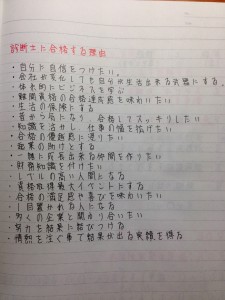 診断士に合格する理由
・自分に自信をつけたい。
・会社が変化しても自分が生活出来る武器にする。
・体系的にビジネスを学ぶ
・難関資格の合格達成感を味わいたい
・生活の保険にする
・昔から気になり、合格してスッキリしたい
・知識を活かし、仕事の幅を拡げたい
・合格の優越感に浸りたい
・起業の助けとする
・一緒に成長出来る仲間を作りたい
・財務知識を付けたい
・レベルの高い人間になる
・資格取得最大イベントにする
・合格の満足感や喜びを味わいたい
・一目置かれる人になる
・多くの企業と関わり合いたい
・努力を結果に結びつける
・情熱を注ぐ事で結果が出る実績を得る